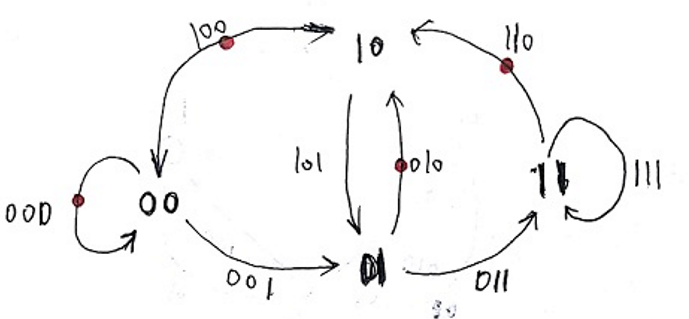 100
10
110
101
010
000
00
11
111
001
01
011